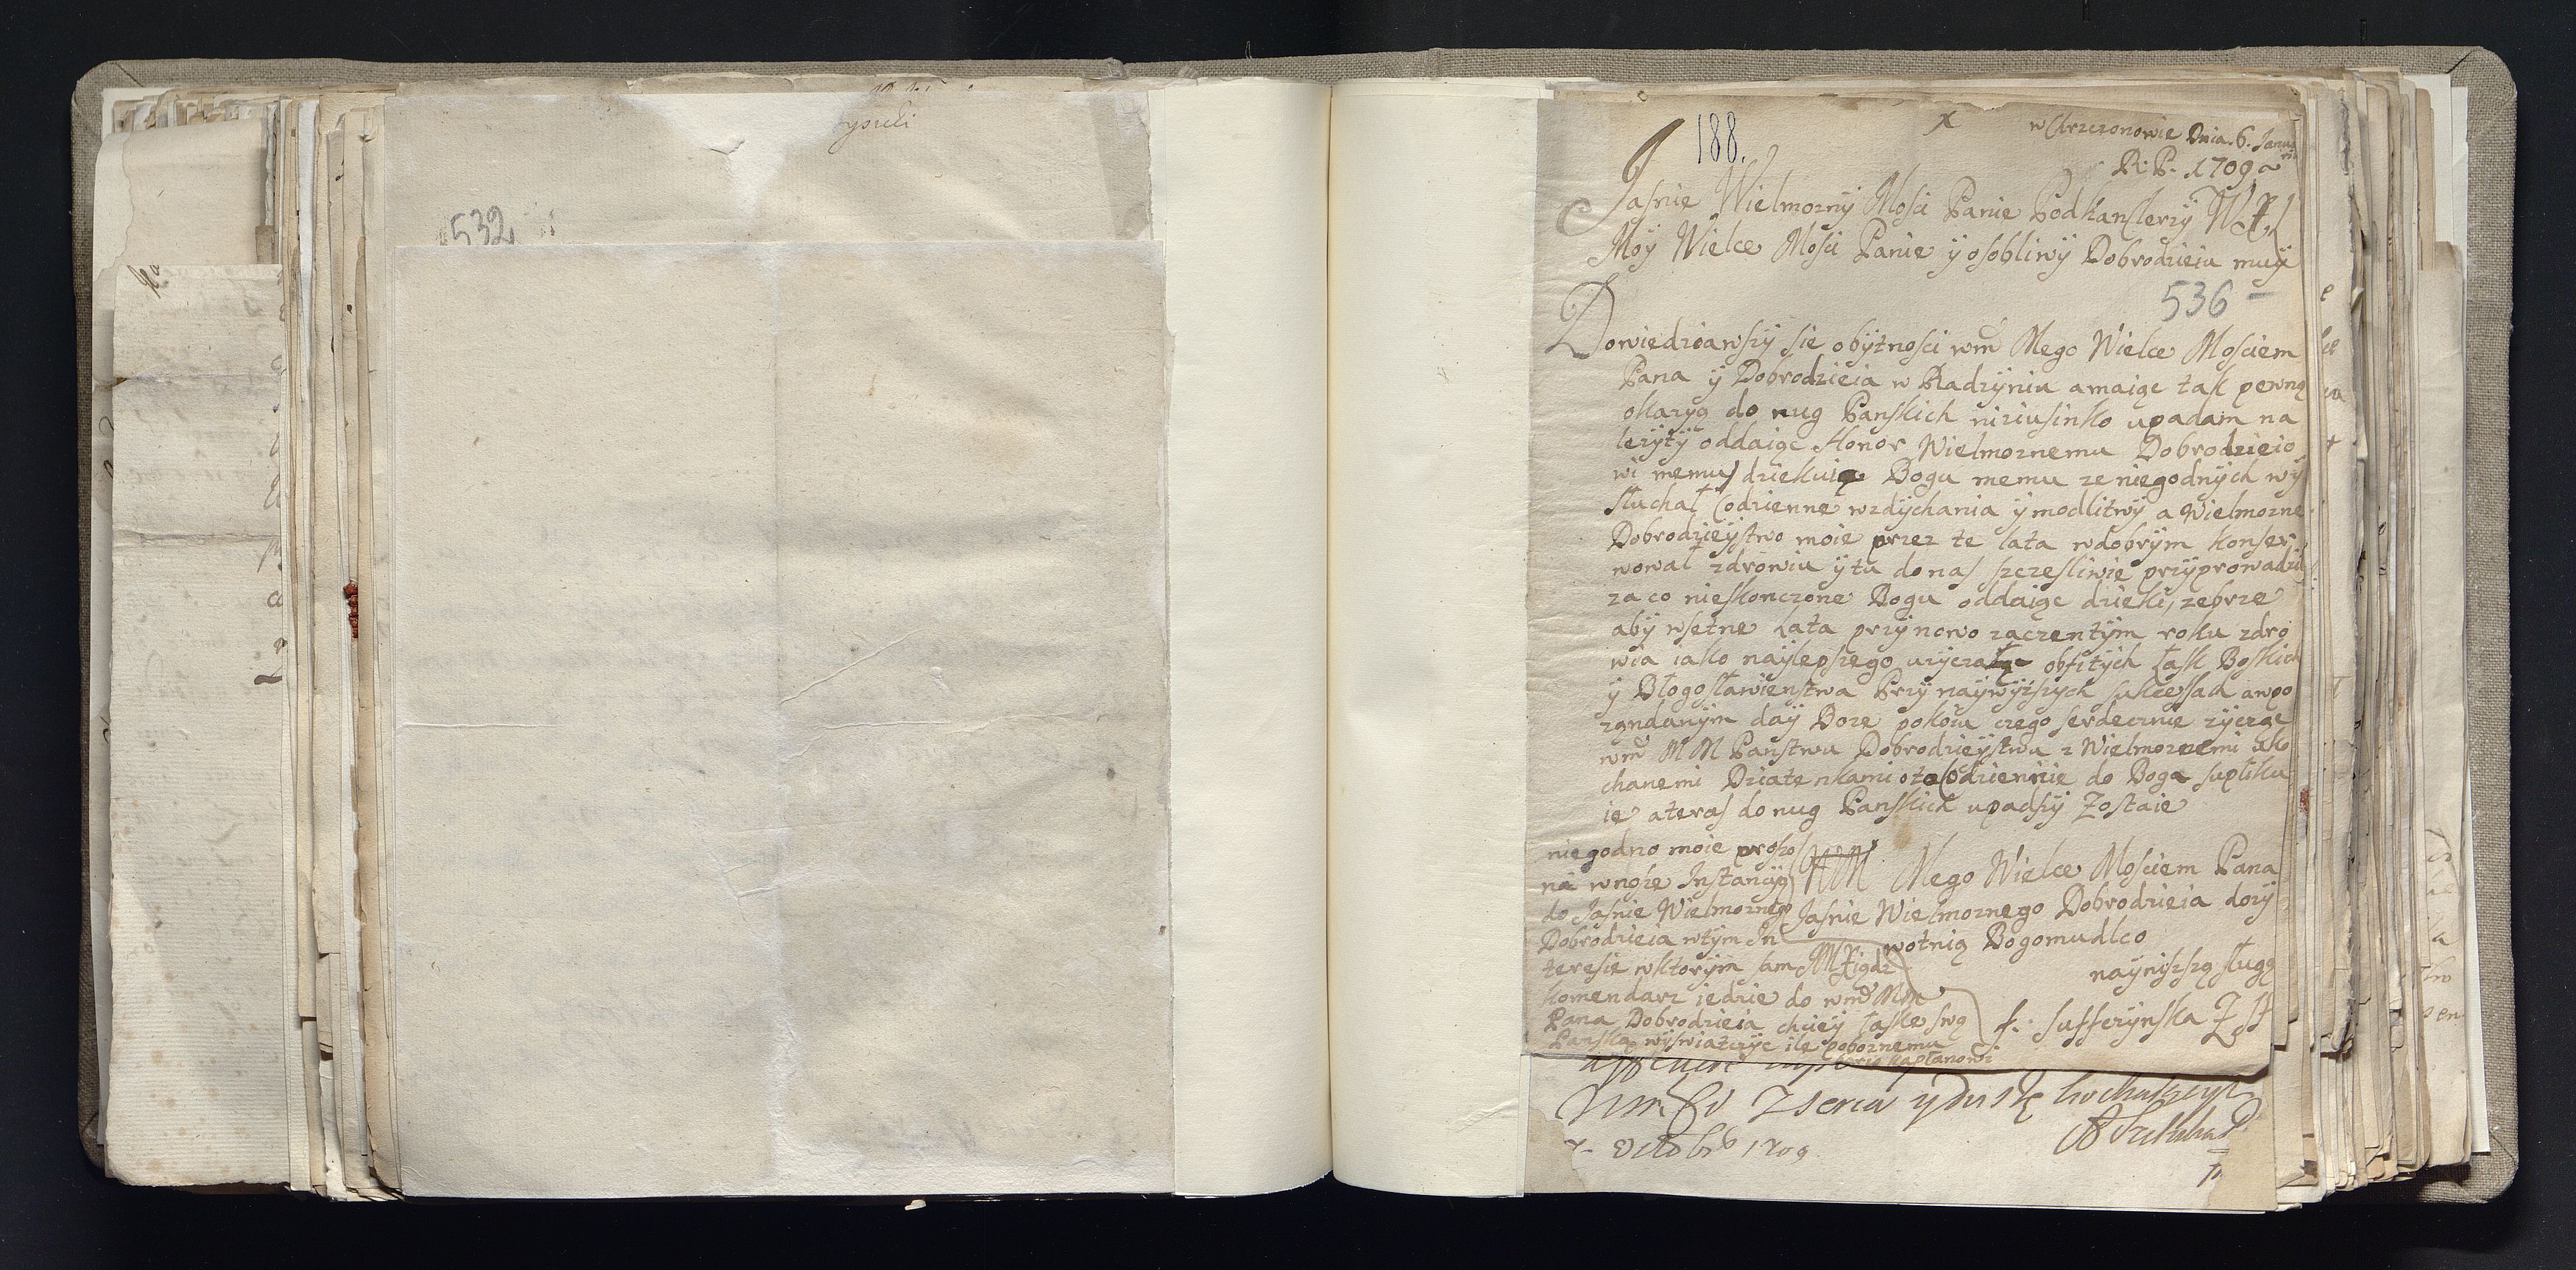 532
188.
w Chrzczonowie Dnia. 6. Janua
R: P. 1709
Jasnie Wielmozny Mosci Panie Podkanclerzy
Moy Wielce Mosci Panie y osobliwy Dobrodzieiu muy
536
Dowiedziawszy sie obytnosci wm Mego Wielce Mosciem
Pana y Dobrodzieia w Radzyniu a maiąc tak pewną
okazyą do nug Panskich niziusinko upadam na
lezyty oddaiąc Honor Wielmoznemu Dobrodzieio
wi memu dziekuię Bogu memu ze niegodnych wy
słuchał Codzienne wzdychania y modlitwy a Wielmozne
Dobrodzieystwo moie przez te lata wdobrym konser
wował zdrowiu y tu do nas szczesliwie przyprowadzil
za co nieskonczone Bogu oddaiąc dzieki, zebrze
aby wsetne Lata przy nowo zaczentym roku zdro
wia iako naylepszego uzyczał obfitych łask Boskich
y Błogosławienstwa Przy naywyzszych sukcessach awpo
ząndanym day Boze pokoiu czego serdecznie zycząc
wm M M Panstwu Dobrodzieystwu z Wielmoznemi uko
chanemi Dziatenkami oto Codziennie do Boga supliku
ie a teras do nug Panskich upadszy Zostaie
niegodno moie prozo
na wnosze Instancyą
do Jasnie Wielmoznego
Dobrodzieia wtym In
teresie wktorym sam
komendarz iedzie do wm
Pana Dobrodzieia chciey łaske swą
Panską wyswiatczyc ile poboznemu
kapłanowi
WM Mego Wielce Mosciem Pana
Jasnie Wielmoznego Dobrodzieia dozy
wotnią Bogomudlco
naynizszą sługą
f: Sufferynska
Octobr 1709